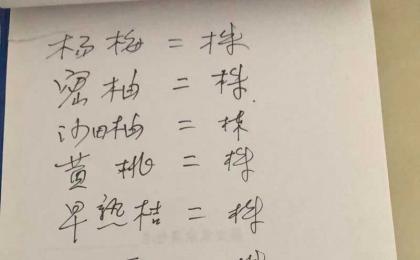 杨梅=株
密柚=株.
沙田柚=株
黄桃=株
早熟桔=株